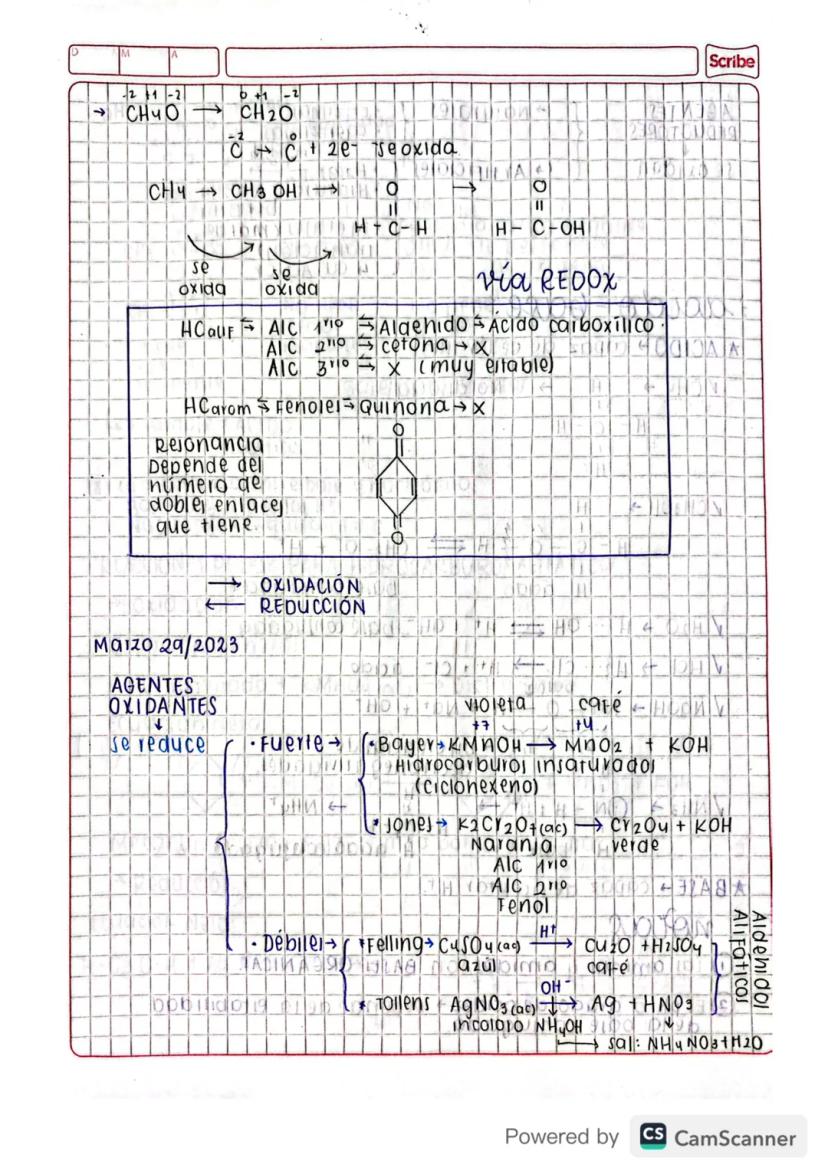 D M A
Scribe
-2 +1 -2 0 +1 -2
→ CH4O → CH2O
-2 0
C → C + 2e- se oxida
CH4 → CH3OH → O → O
|| ||
H-C-H H-C-OH
se oxida se oxida
vía REDOX
HCalif ⇆ Alc 1rio ⇆ Aldehido ⇆ Ácido carboxílico.
Alc 2rio ⇆ cetona → X
Alc 3rio ⇆ X (muy estable)
HCarom ⇆ Fenoles ⇆ Quinona → X
Resonancia
Depende del
número de
dobles enlaces
que tiene.
O
O
→ OXIDACIÓN
← REDUCCIÓN
Marzo 29/2023
AGENTES
OXIDANTES
↓
se reduce
violeta café
+7 +4
• Fuerte → • Bayer → KMnOH → MnO2 + KOH
Hidrocarburos insaturados
(ciclonexeno)
• Jones → K2Cr2O7(ac) → Cr2O4 + KOH
Naranja verde
Alc 1rio
Alc 2rio
Fenol
• Débiles → • Felling → CuSO4(ac) H+ → Cu2O + H2SO4
azúl café
• Tollens AgNO3(ac) OH- → Ag + HNO3
incoloro NH4OH
→ sal: NH4NO3+H2O
Aldehidos
Alifáticos
Powered by CS CamScanner